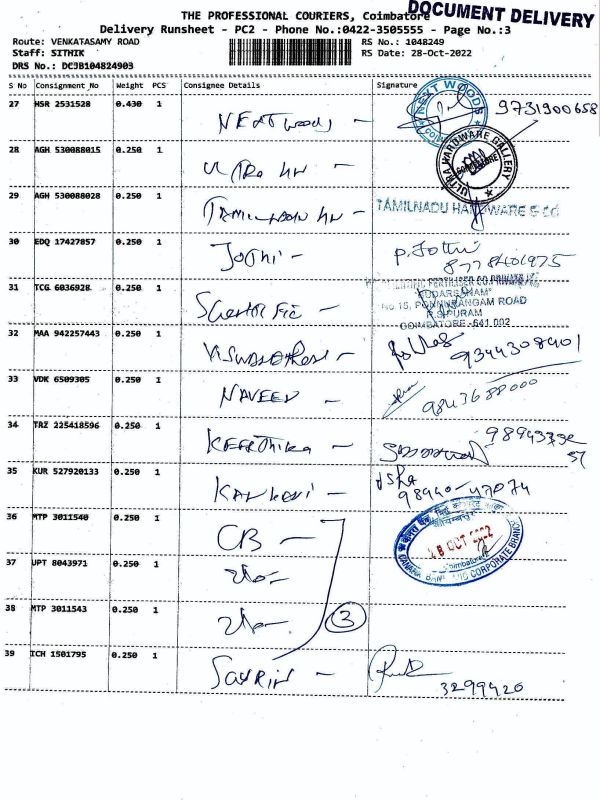 DOCUMENT DELIVERY
THE PROFESSIONAL COURIERS, Coimbatore
Delivery Runsheet - PC2 - Phone No.:0422-3505555 - Page No.:3
Route: VENKATASAMY ROAD RS No.: 1048249
Staff: SITHIK RS Date: 28-Oct-2022
DRS No.: DC3B104824903
S No Consignment_No Weight PCS Consignee Details Signature
27 HSR 2531528 0.430 1
NEXT WOODS 9731900658
NEXT WOODS
28 AGH 530088015 0.250 1
ULTRA HARDWARE GALLERY
COIMBATORE
29 AGH 530088028 0.250 1
TAMILNADU HARDWARE & CO
30 EDQ 17427857 0.250 1
Jothi - P. Jothi
8778401975
31 TCG 6036928 0.250 1
"SUDARSANAM"
No.15, PONNURANGAM ROAD
R.S.PURAM
COIMBATORE - 641 002
32 MAA 942257443 0.250 1
9344308401
33 VDK 6509305 0.250 1
NAVEEN - 9843688000
34 TRZ 225418596 0.250 1
KEERTHIKA -
35 KUR 527920133 0.250 1
Usha
98940-47074
36 MTP 3011540 0.250 1
CB -
37 UPT 8043971 0.250 1
OCT 2022
CANARA BANK
CORPORATE BRANCH
38 MTP 3011543 0.250 1
3
39 TCH 1501795 0.250 1
3299420